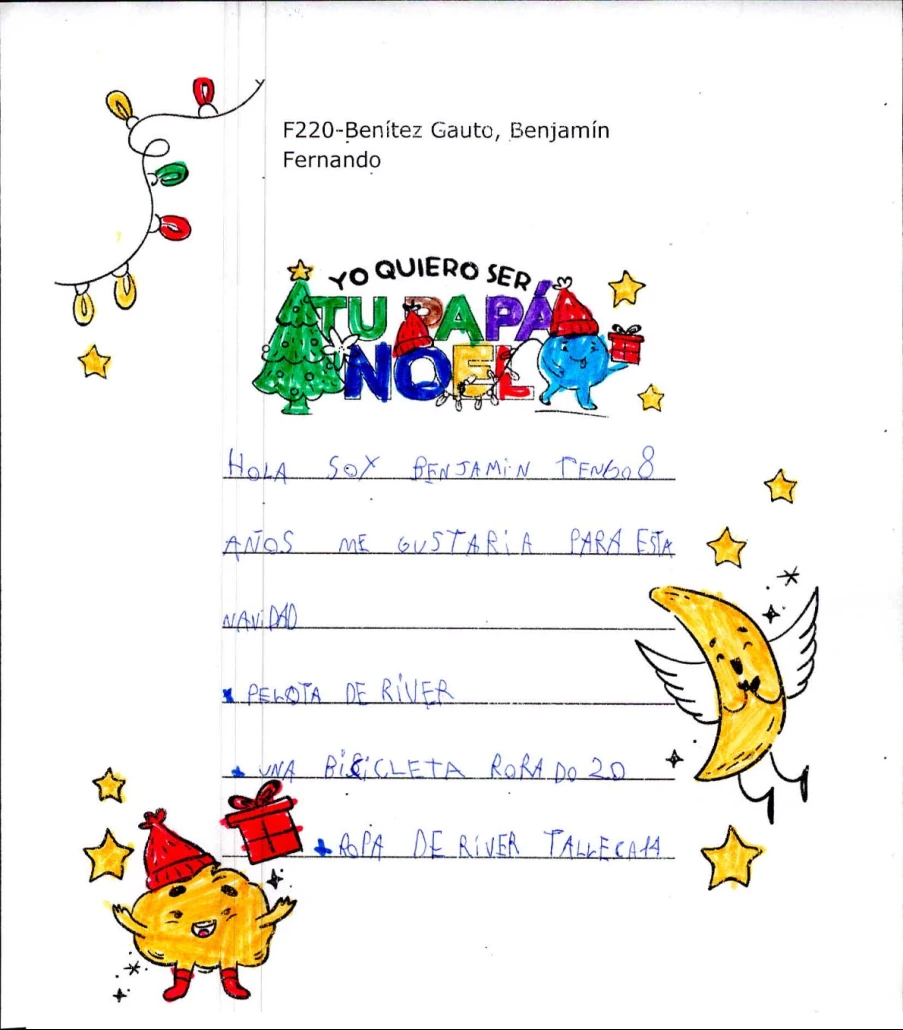 F220-Benítez Gauto, Benjamín
Fernando
YO QUIERO SER
TU PAPÁ
NOEL
HOLA SOY BENJAMiN TENGO 8
AÑOS ME GUSTARiA PARA ESTA
NAViDAD
PELOTA DE RiVER
UNA BiCiCLETA RORADO 20
ROPA DE RiVER TALLE 14